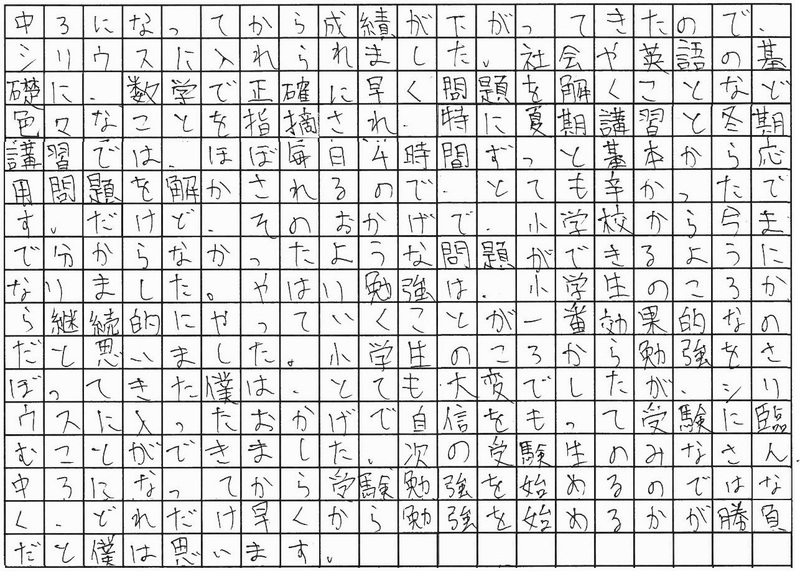 中3になってから成績が下がってきたので、
シリウスに入れられました。社会や英語の基
礎に、数学で正確に早く問題を解くことなど
色々なことを指摘され、特に夏期講習と冬期
講習では、ほぼ毎日4時間ずっと基本から応
用問題を解かされるので、とても辛かったで
す。だけど、そのおかげで、小学校から今ま
で分からなかったような問題ができるように
なりました。やはり勉強は、小学生のころか
ら継続的にやっていくことが一番効果的なの
だと思いました。小学生のころから勉強をさ
ぼってきた僕は、とても大変でしたが、シリ
ウスに入ったおかげで自信をもって受験に臨
むことができました。次の受験生のみなさん、
中3になってから受験勉強を始めるのではな
く、どれだけ早くから勉強を始めるかが勝負
だと僕は思います。